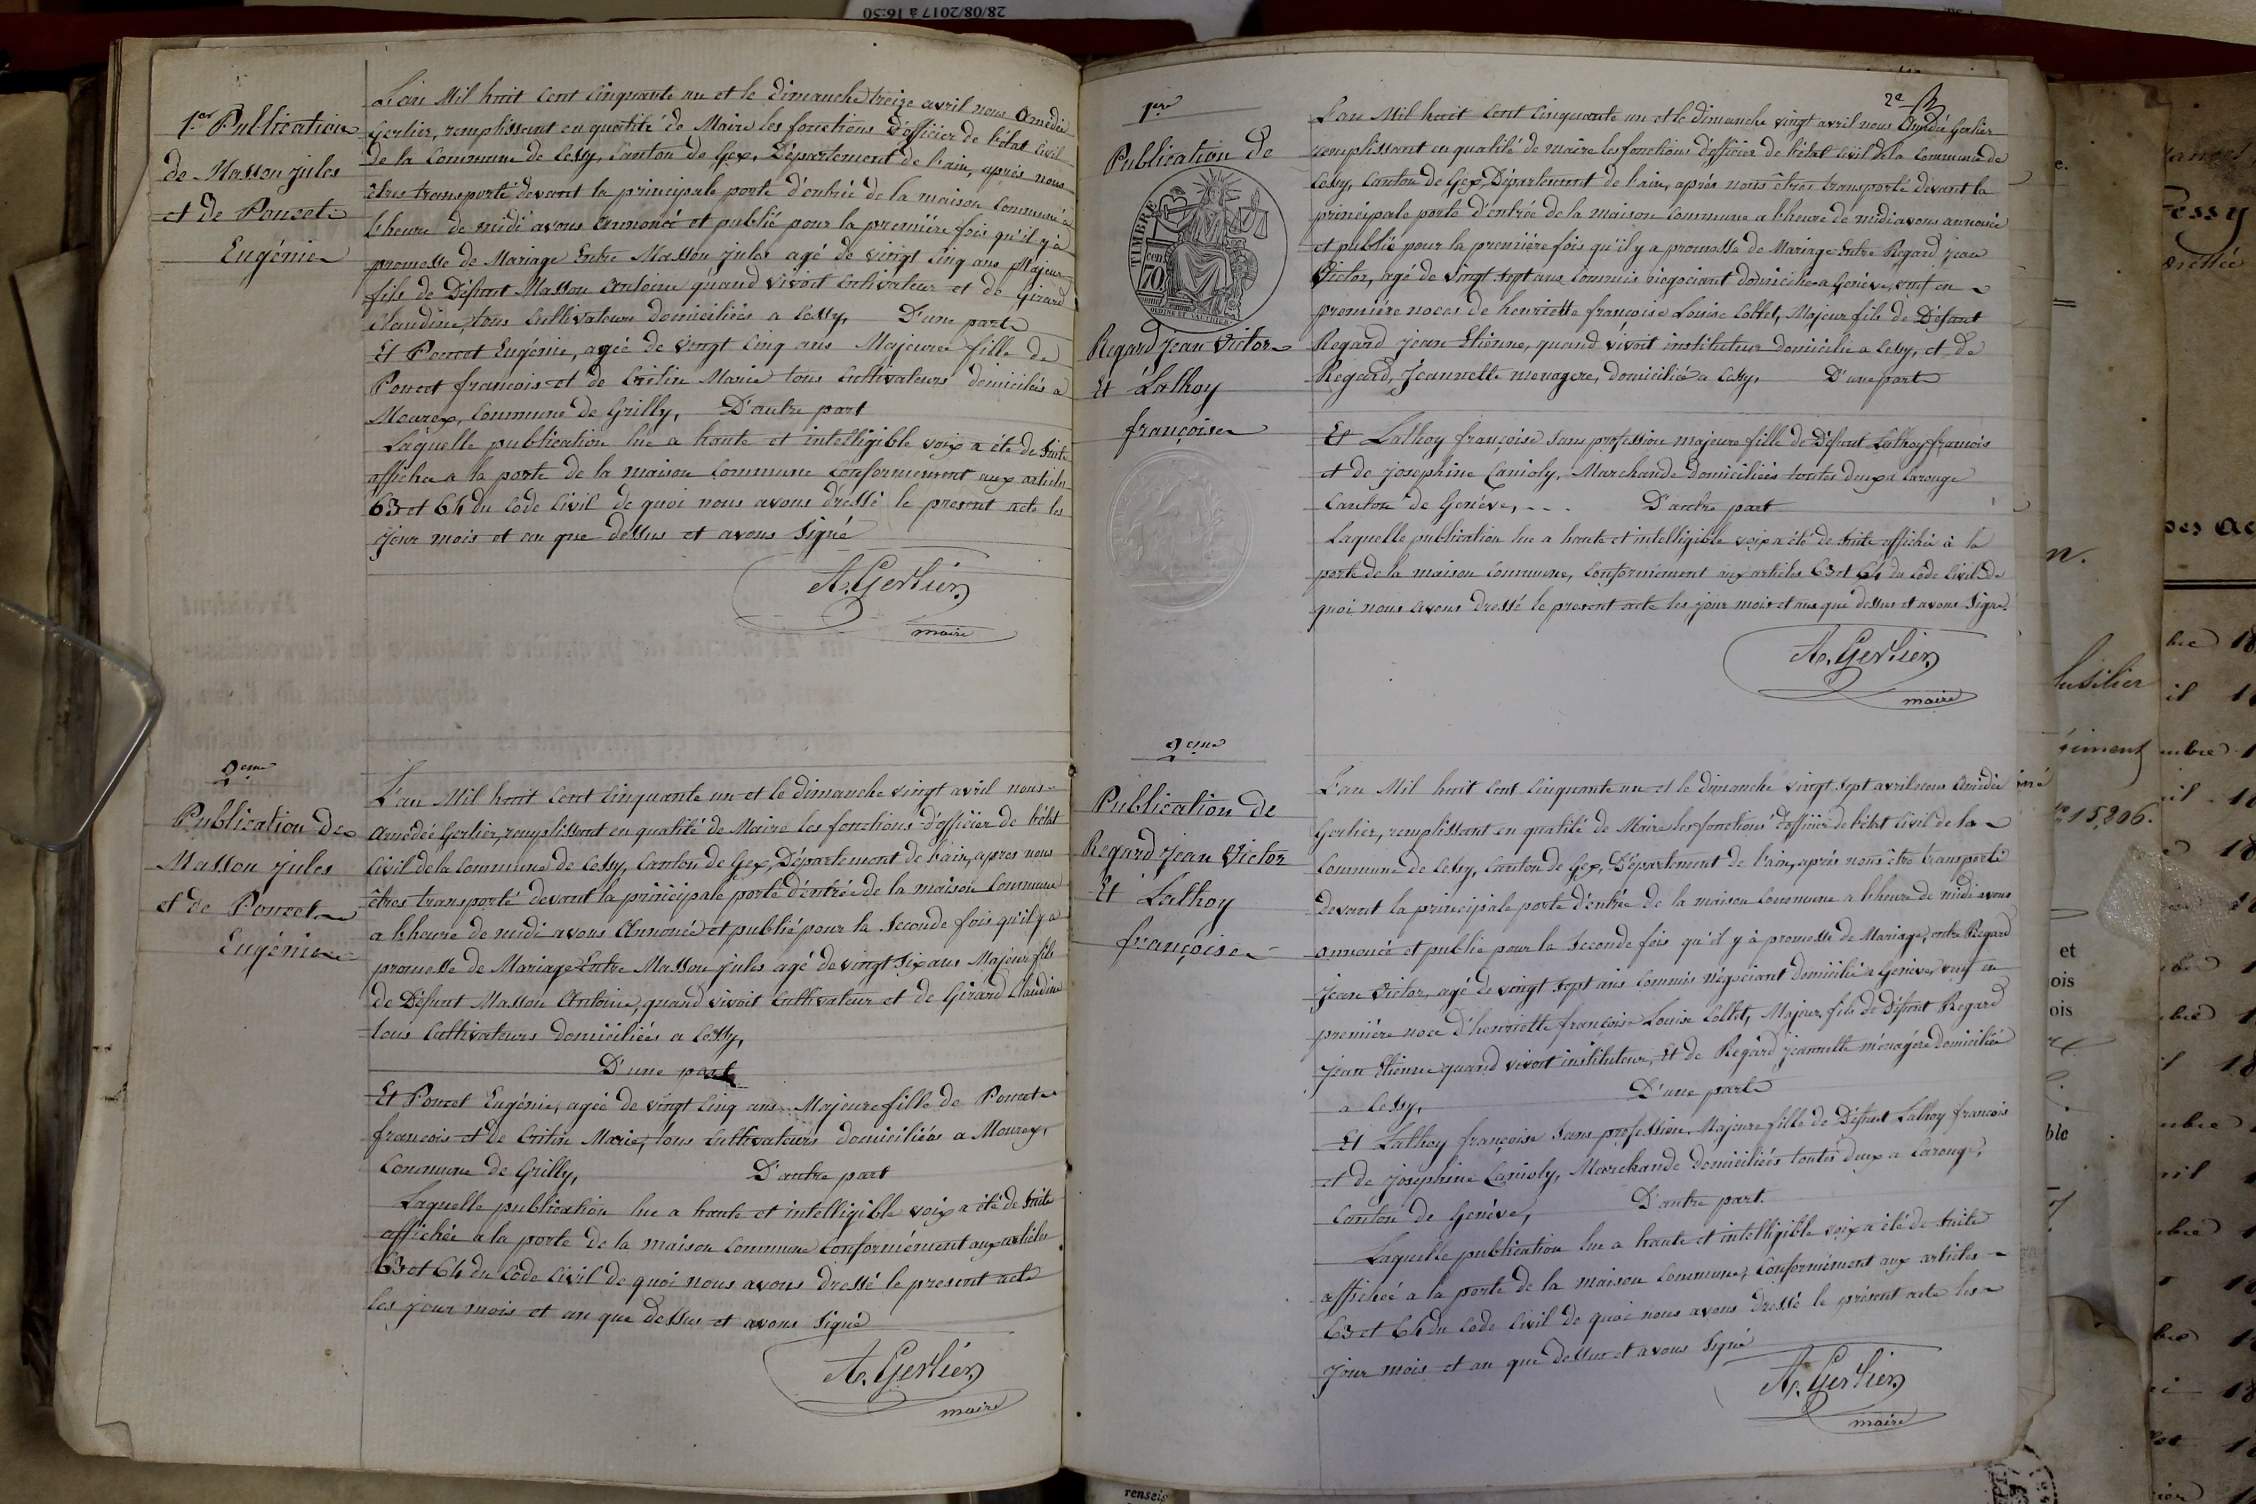 28/08/2017 à 16:50
1ere Publication
de Masson jules
et de Poncet
Eugénie
L'an Mil huit Cent Cinquante un et le dimanche treize avril nous Amédée
Gerlier, remplissant en qualité de Maire les fonctions d'officier de l'état Civil
de la Commune de Cessy, Canton de Gex, Département de l'ain, après nous
êtres transporté devant la principale porte d'entrée de la maison Commune a
l'heure de midi avons Annoncé et publié pour la première fois qu'il y a
promesse de Mariage Entre Masson jules agé de vingt Cinq ans Majeur
fils de Défunt Masson Antoine quand vivoit Cultivateur et de Girard
Claudine, tous Cultivateurs domiciliés a Cessy, D'une part
Et Poncet Eugénie, agée de vingt Cinq ans Majeure fille de
Poncet francois et de Critin Marie tous Cultivateurs domiciliés a
Mourex, Commune de Grilly, D'autre part
Laquelle publication lue a haute et intelligible voix a été de Suite
affichée a la porte de la maison Commune Conformement aux articles
63 et 64 du Code Civil de quoi nous avons dressé le present acte les
jour mois et an que dessus et avons Signé
A. Gerlier
maire
2eme
Publication de
Masson jules
et de Poncet
Eugénie
L'an Mil huit Cent Cinquante un et le dimanche vingt avril nous
Amédée Gerlier, remplissant en qualité de Maire les fonctions d'officier de l'état
Civil de la Commune de Cessy, Canton de Gex, Département de l'ain, apres nous
êtres transporté devant la principale porte d'entrée de la maison Commune
a l'heure de midi avons Annoncé et publié pour la Seconde fois qu'il y a
promesse de Mariage Entre Masson jules agé de vingt Six ans Majeur fils
de Défunt Masson Antoine, quand vivoit Cultivateur et de Girard Claudine
tous Cultivateurs domiciliés a Cessy,
D'une part
Et Poncet Eugénie, agée de vingt Cinq ans Majeure fille de Poncet
francois et de Critin Marie, tous Cultivateurs domiciliés a Mourex,
Commune de Grilly, D'autre part
Laquelle publication lue a haute et intelligible voix a été de Suite
affichée a la porte de la maison Commune Conformément aux articles
63 et 64 du Code Civil de quoi nous avons dressé le present acte
les jour mois et an que dessus et avons Signé
A. Gerlier
maire
2e
1ere
Publication de
TIMBRE
cent
70
Regard Jean Victor
Et Lathoy
françoise
L'an Mil huit Cent Cinquante un et le dimanche vingt avril nous Amédée Gerlier
remplissant en qualité de maire les fonctions d'officier de l'état Civil de la Commune de
Cessy, Canton de Gex, Département de l'ain, aprés nous êtres transporté devant la
principale porte d'entrée de la maison Commune a l'heure de midi avons annoncé
et publié pour la première fois qu'il y a promesse de Mariage Entre Regard Jean
Victor, agé de vingt sept ans Commis négociant domicilié a Genève, veuf en
première noces de henriette françoise Louise Collet, Majeur fils de Défunt
Regard Jean Etienne, quand vivoit instituteur domicilié a Cessy, et de
Regard, Jeannette menagere, domiciliée a Cessy, D'une part
Et Lathoy françoise Sans profession majeure fille de Défunt Lathoy francois
et de josephine Canioly, Marchande domiciliées toutes deux a Carouge
Canton de Genéve, D'autre part
Laquelle publication lue a haute et intelligible voix a été de Suite affichée à la
porte de la maison Commune, Conformément aux articles 63 et 64 du Code Civil de
quoi nous avons dressé le present acte les jour mois et an que dessus et avons Signé.
A. Gerlier
maire
2eme
Publication de
Regard Jean Victor
Et Lathoy
françoise
L'an Mil huit Cent Cinquante un et le dimanche vingt Sept avril nous Amédée
Gerlier, remplissant en qualité de Maire les fonctions d'officier de l'état Civil de la
Commune de Cessy, Canton de Gex, Département de l'ain, aprés nous être transporté
devant la principale porte d'entrée de la maison Commune a l'heure de midi avons
annoncé et publié pour la Seconde fois qu'il y à promesse de Mariage, entre Regard
Jean Victor, agé de vingt Sept ans Commis Négociant domicilié a Genève, veuf en
première noce d'henriette françoise Louise Collet, Majeur fils de Défunt Regard
Jean Etienne quand vivoit instituteur, Et de Regard Jeannette ménagére domiciliée
a Cessy, D'une part
Et Lathoy françoise Sans profession, Majeure fille de Défunt Lathoy francois
et de josephine Canioly, Marchande domiciliées toutes deux a Carouge,
Canton de Genève, D'autre part.
Laquelle publication lue a haute et intelligible voix a été de Suite
affichée a la porte de la maison Commune, Conformément aux articles
63 et 64 du Code Civil de quoi nous avons dressé le présent acte les
jour mois et an que dessus et avons Signé
A. Gerlier
maire
fusilier
15,206.
et
ois
ois
ble
renseig